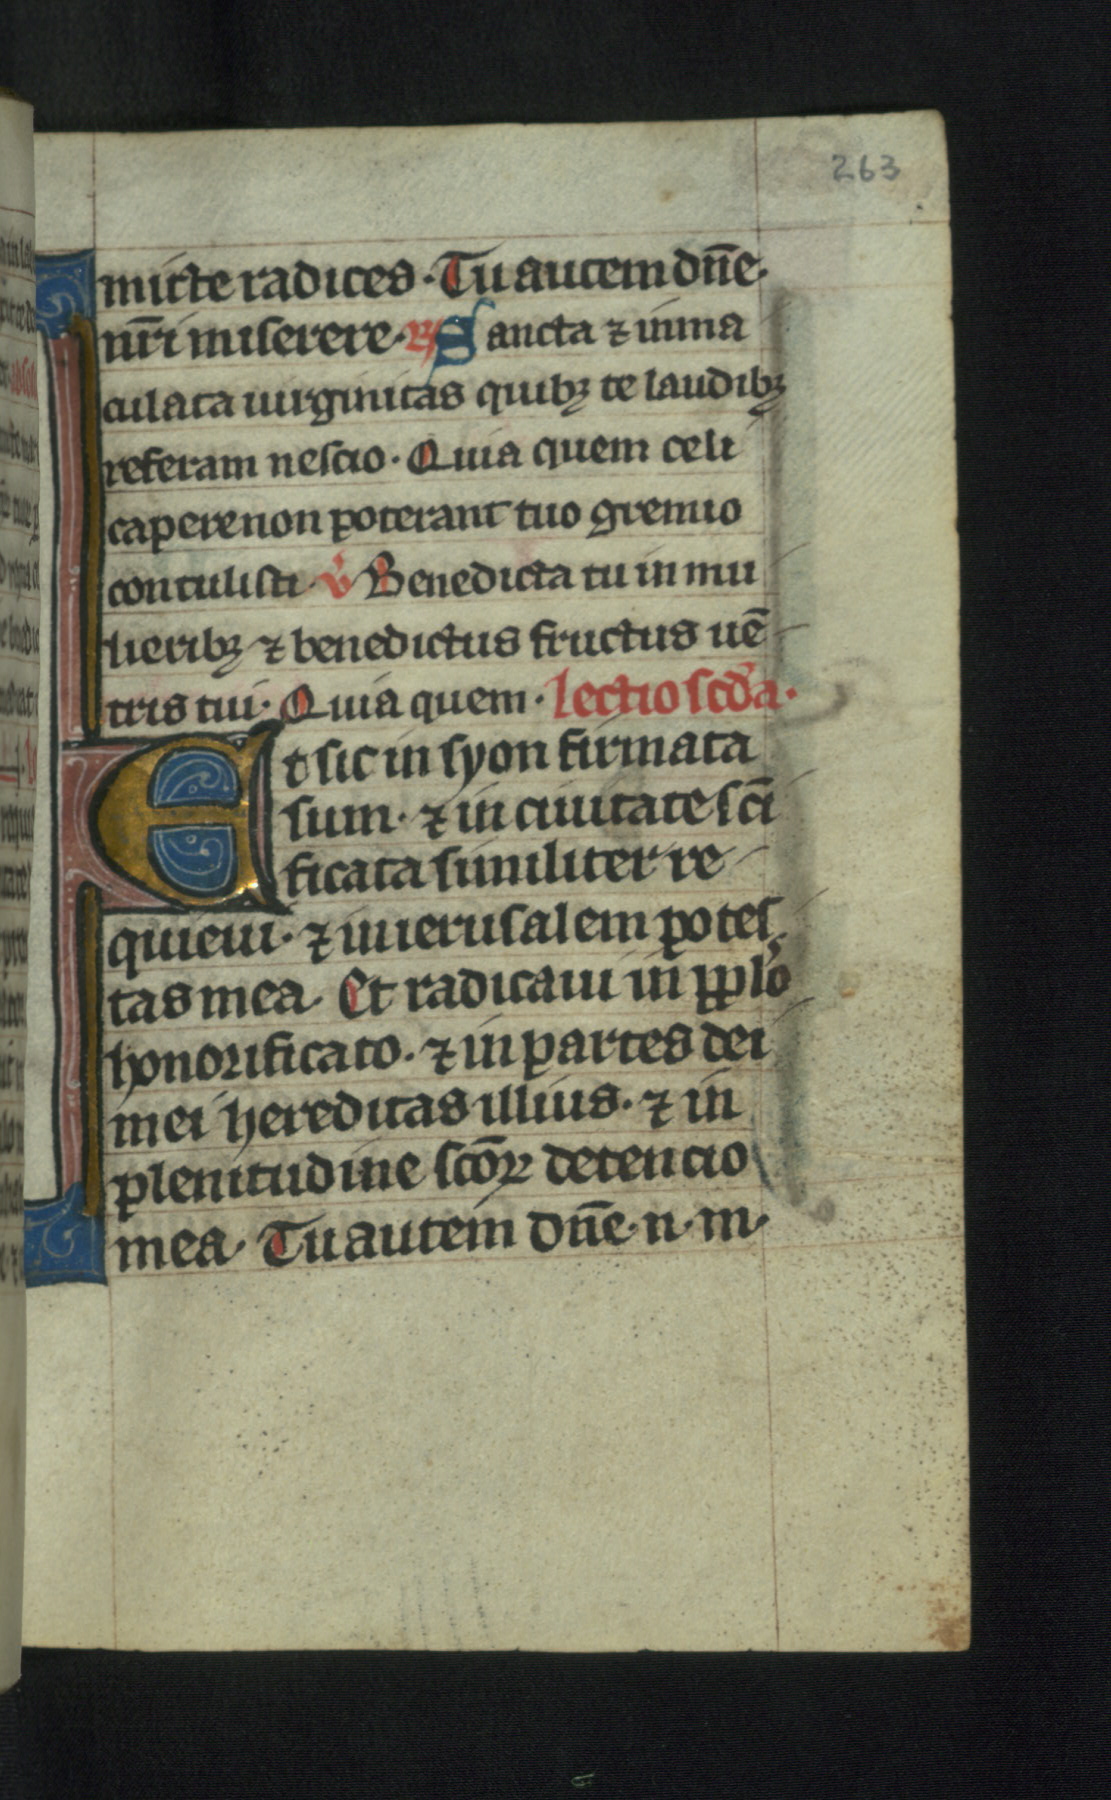 263
mitte radices. Tu autem dn̄e.
nr̄i miserere. ℟ Sancta ⁊ inma
culata uirginitas quibꝫ te laudibꝫ
referam nescio. Quia quem celi
capere non poterant tuo gremio
contulisti. v̇ Benedicta tu in mu
lieribꝫ ⁊ benedictus fructus uē
tris tui. Quia quem. lectio scd̄a.
Et sic in syon firmata
sum. ⁊ in ciuitate sc̄i
ficata similiter re
quieui. ⁊ in ierusalem potes
tas mea. Et radicaui in pplo
honorificato. ⁊ in partes dei
mei hereditas illius. ⁊ in
plenitudine sc̄oꝝ detencio
mea. Tu autem dn̄e. n. m.